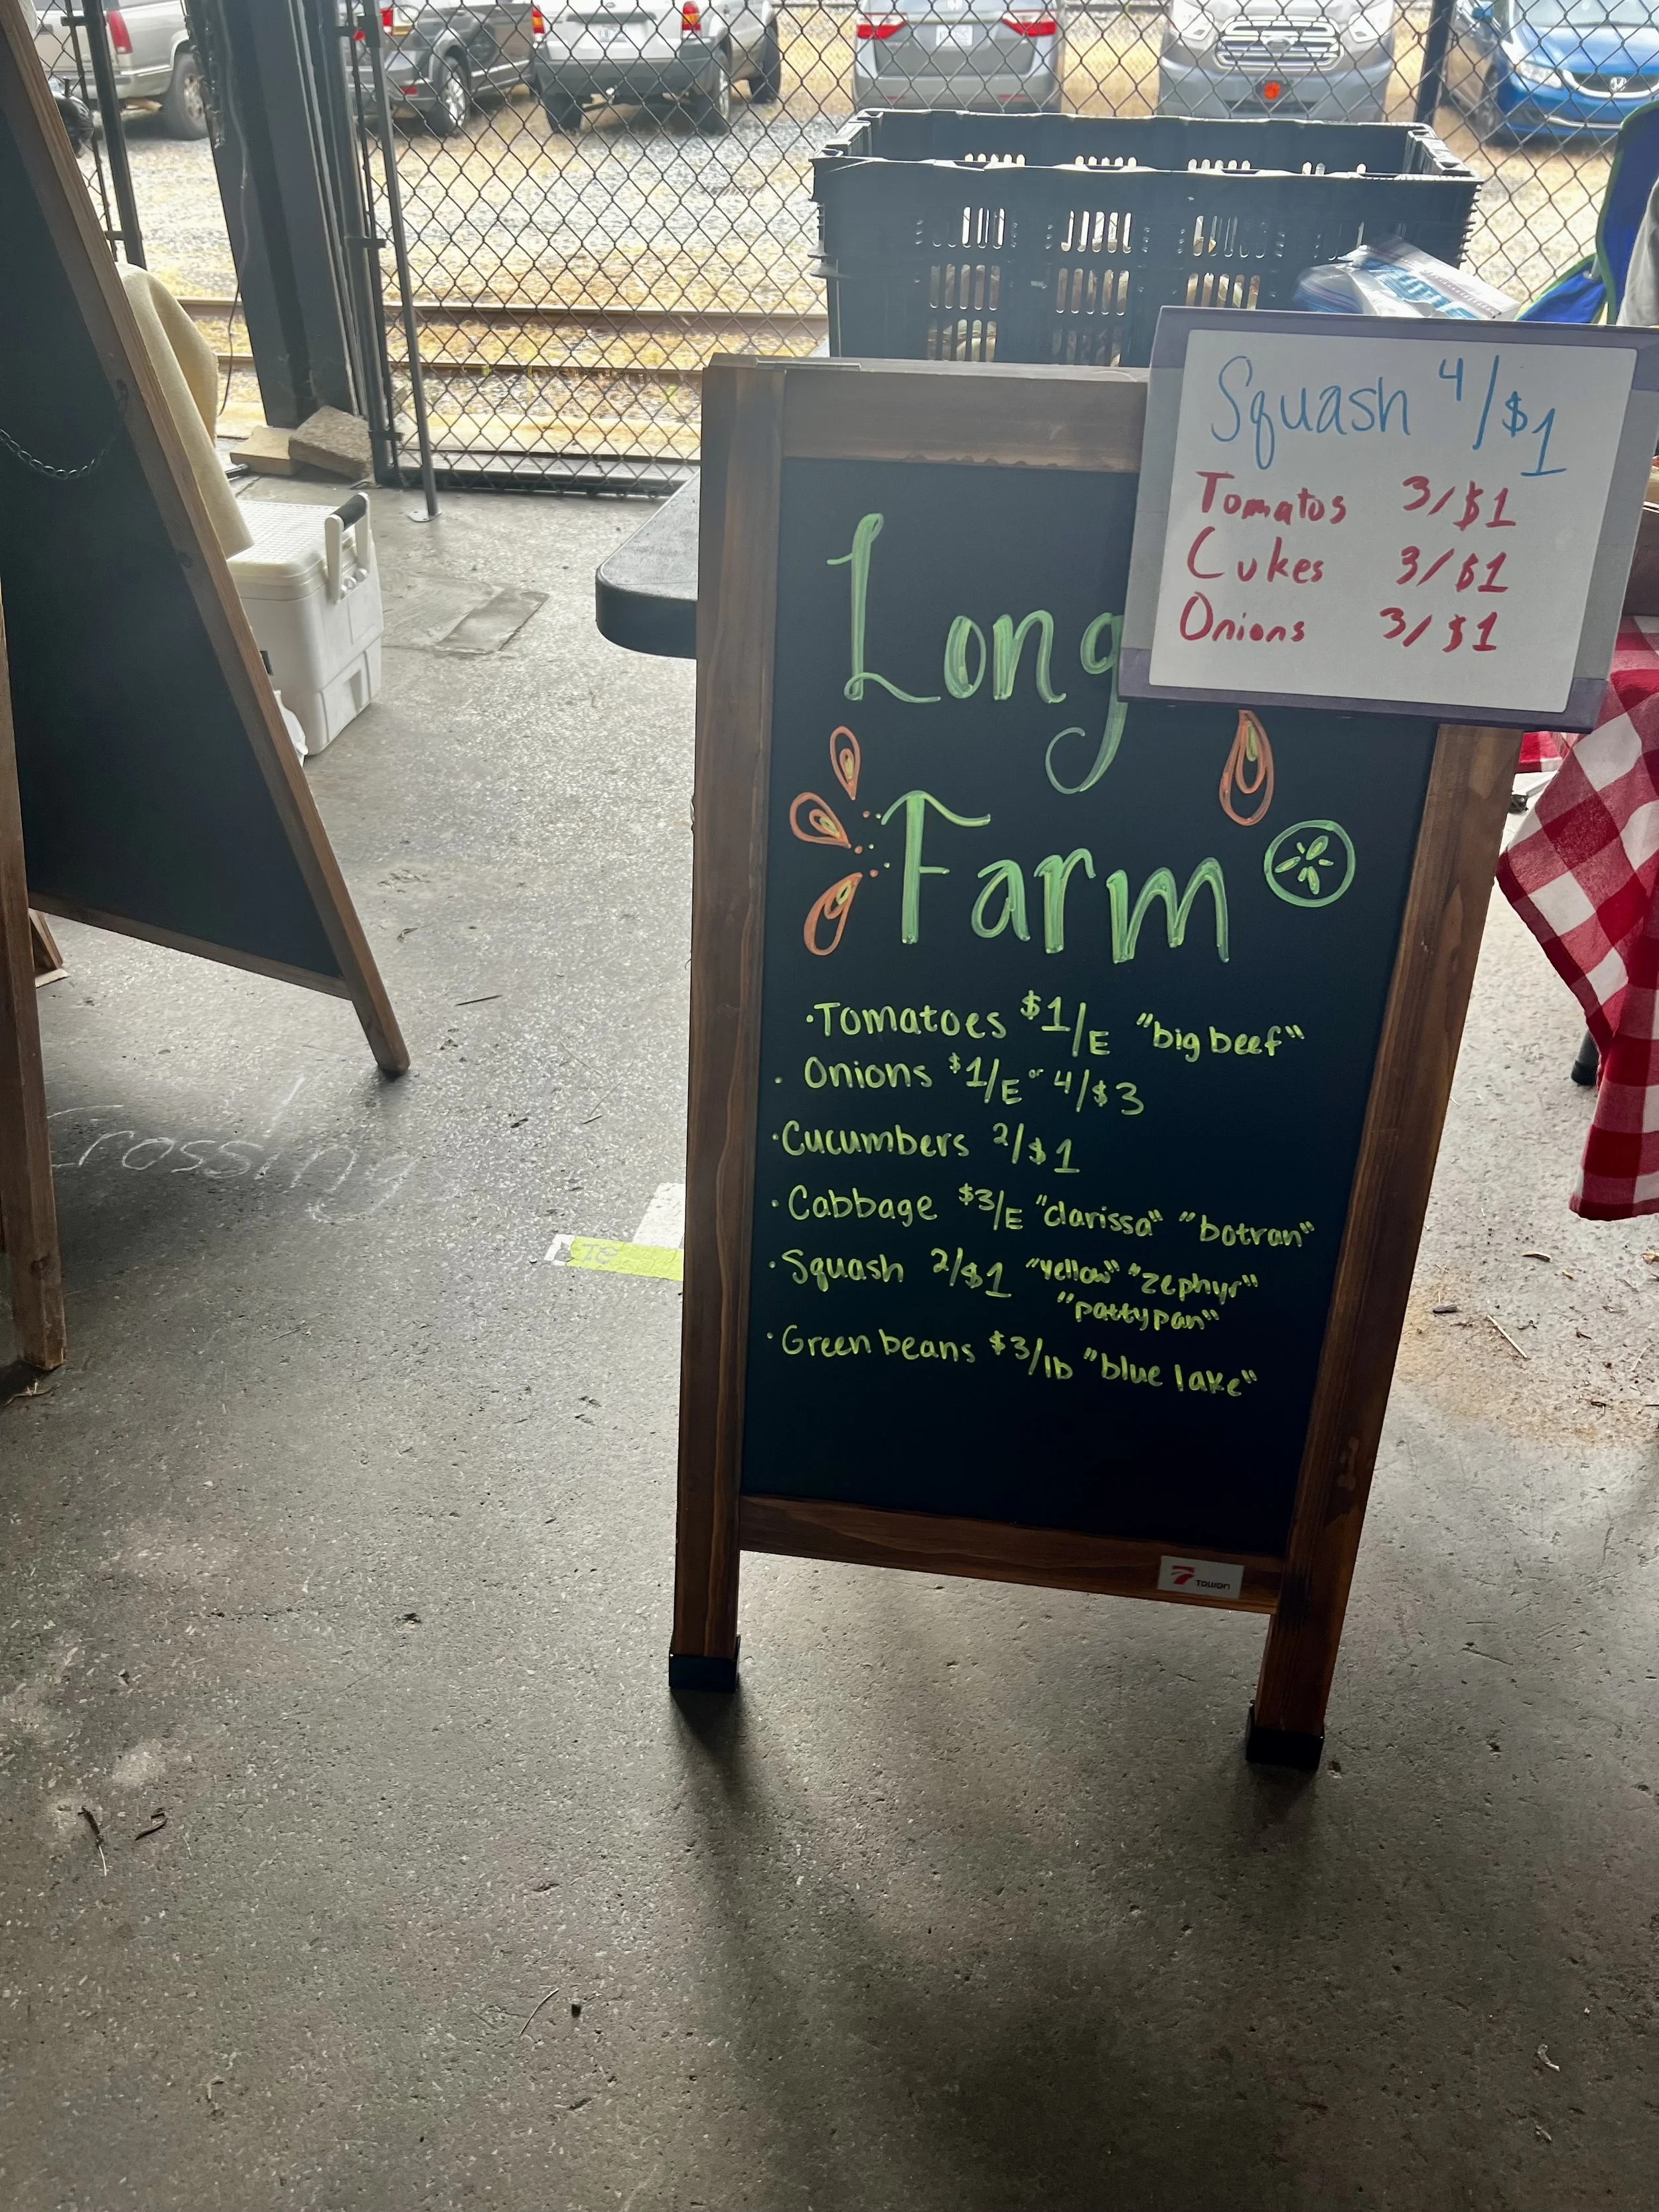 Squash 4/$1
Tomatos 3/$1
Cukes 3/$1
Onions 3/$1
Long
Farm
•Tomatoes $1/E "big beef"
• Onions $1/E or 4/$3
•Cucumbers 2/$1
•Cabbage $3/E "clarissa" "botran"
•Squash 2/$1 "yellow" "zephyr"
"pattypan"
•Green beans $3/lb "blue lake"
TOWON